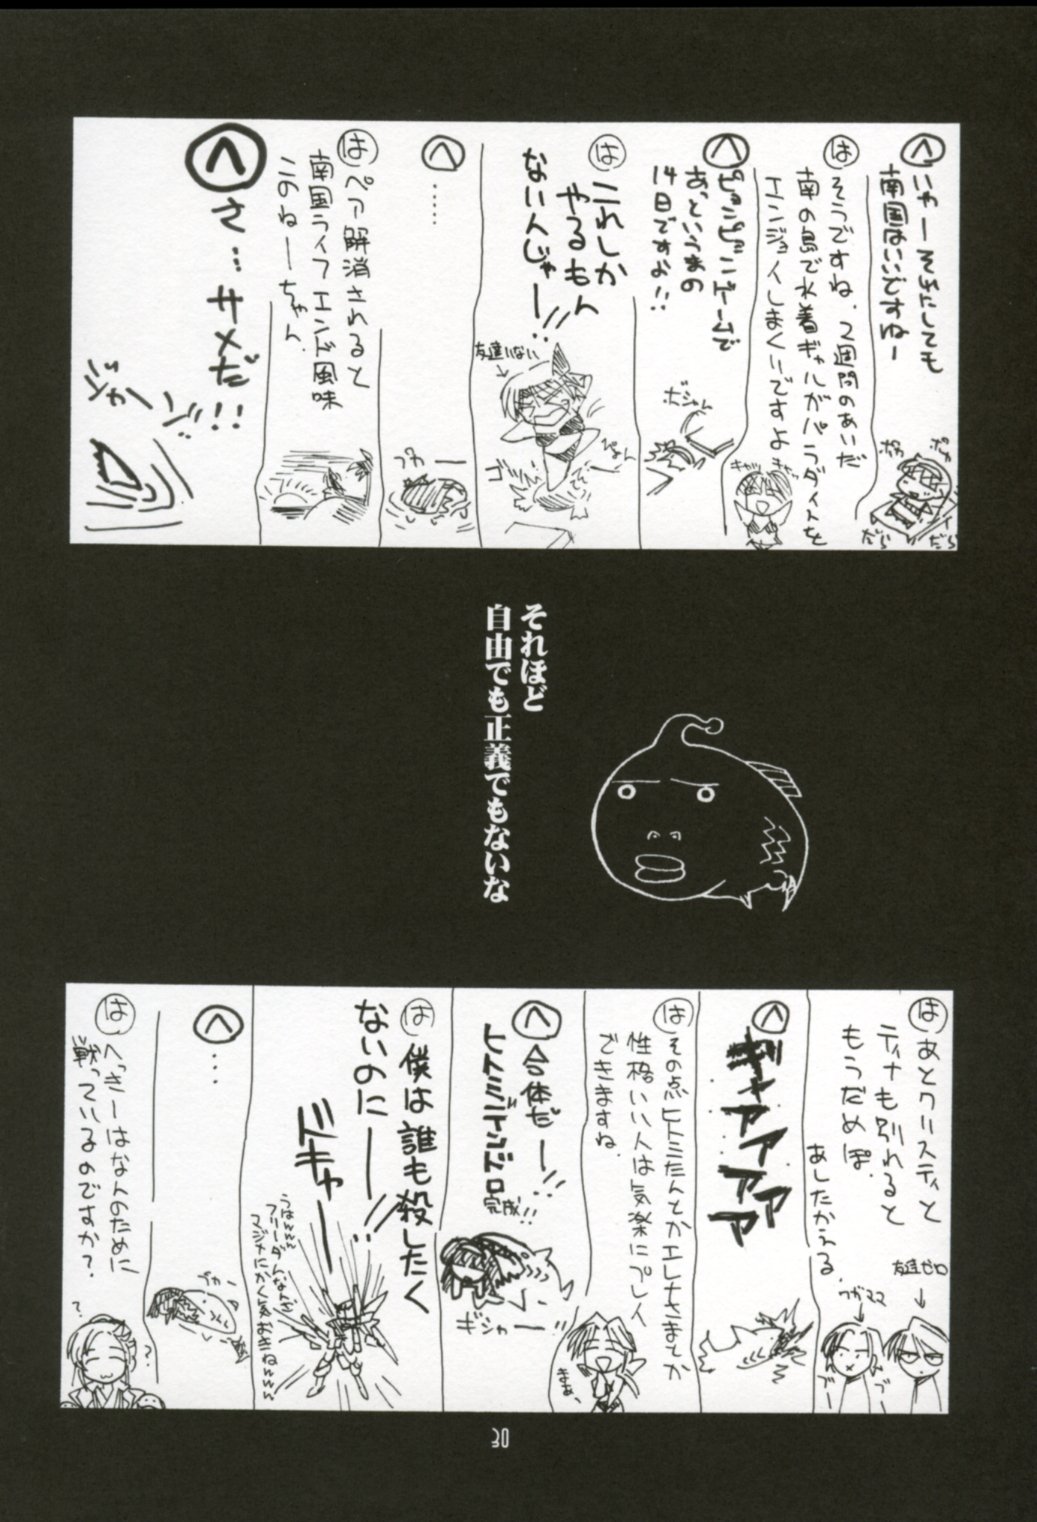 へ
いやーそれにしても
南国はいいですねー
ポワ
ポワ
だら
だら
は
そうですね、2週間のあいだ
南の島で水着ギャルがパラダイスを
エンジョイしまくりですよ
キャッ
キャッ
へ
ピョンピョンゲームで
あっというまの
14日ですよ!!
ボシャーん
は
これしか
やるもん
ないんじゃー!!
友達いない
ぴょん
ゴゴ
へ
……
プカー
は
ペア解消されると
南国ライフエンド風味
このねーちゃん
へ
さ…サメだ!!
ジャ
それほど
自由でも正義でもないな
は
あとクリスティと
ティナも別れると
もうだめぽ。
あしたかえる。
友達ゼロ
ブ
ブ
へ
ギャアアアアア
は
その点ヒトミたんとかエレナさまとか
性格いい人は気楽にプレイ
できますね。
まあ、
へ
合体だー!!
ヒトミデンドロ
完成!!
ギシャー!!
は
僕は誰も殺したく
ないのにーー!!
ドキャー
うはんんん
フリーダムなんぞ
マジでにかく気おきねんんん
へ
…
プカー
は
へっきーはなんのために
戦っているのですか?
?
?
30